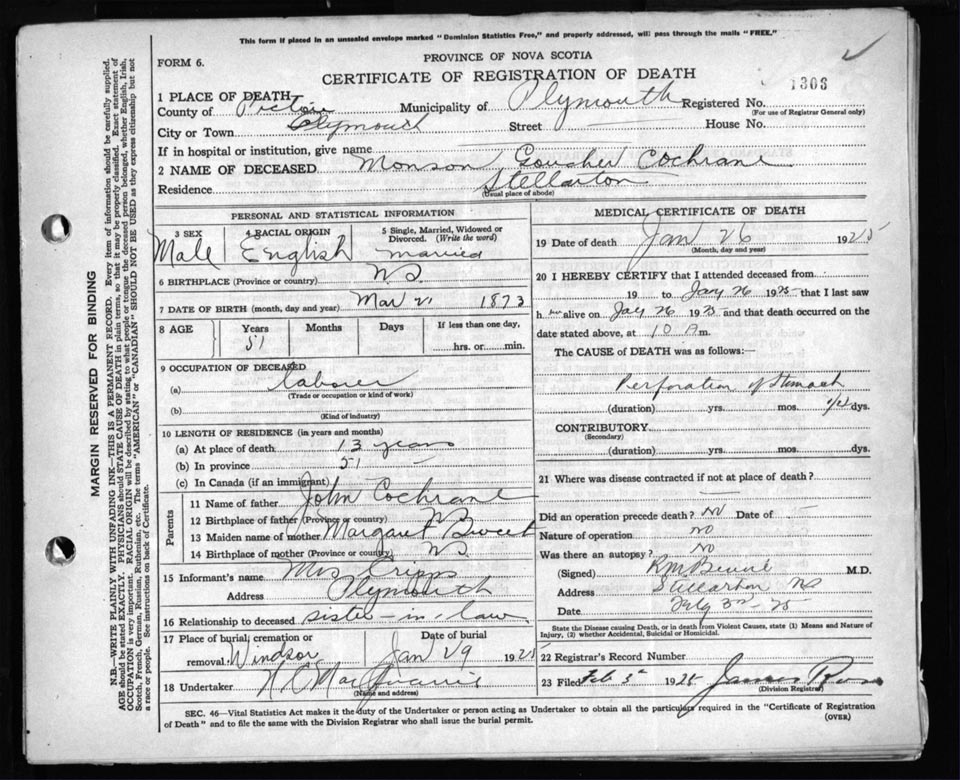 This form if placed in an unsealed envelope marked "Dominion Statistics Free," and properly addressed, will pass through the mails "FREE."
FORM 6.
PROVINCE OF NOVA SCOTIA
CERTIFICATE OF REGISTRATION OF DEATH
1303
1 PLACE OF DEATH
County of Pictou Municipality of Plymouth Registered No.
(For use of Registrar General only)
City or Town Plymouth Street House No.
If in hospital or institution, give name
2 NAME OF DECEASED Monson Goucher Cochrane
Residence Stellarton
(Usual place of abode)
PERSONAL AND STATISTICAL INFORMATION
3 SEX 4 RACIAL ORIGIN 5 Single, Married, Widowed or Divorced. (Write the word)
Male English Married
6 BIRTHPLACE (Province or country) N.S.
7 DATE OF BIRTH (month, day and year) Mar 21 1873
8 AGE Years Months Days If less than one day,
51 hrs. or min.
9 OCCUPATION OF DECEASED
(a) Laborer
(Trade or occupation or kind of work)
(b)
(Kind of industry)
10 LENGTH OF RESIDENCE (in years and months)
(a) At place of death 13 years
(b) In province 51
(c) In Canada (if an immigrant)
Parents
11 Name of father John Cochrane
12 Birthplace of father (Province or country) NS
13 Maiden name of mother Margaret
14 Birthplace of mother (Province or country) NS
15 Informant's name Mrs Cripps
Address Plymouth
16 Relationship to deceased sister-in-law
17 Place of burial, cremation or removal Windsor Date of burial Jan 29 1925
18 Undertaker
(Name and address)
MEDICAL CERTIFICATE OF DEATH
19 Date of death Jan 26 1925
(Month, day and year)
20 I HEREBY CERTIFY that I attended deceased from
19 to Jay 26 1925 that I last saw
h alive on Jay 26 1925 and that death occurred on the
date stated above, at 10 A m.
The CAUSE OF DEATH was as follows:—
Perforation of Stomach
(duration) yrs. mos. 1/2 dys.
CONTRIBUTORY
(Secondary)
(duration) yrs. mos. dys.
21 Where was disease contracted if not at place of death?
Did an operation precede death? No Date of
Nature of operation No
Was there an autopsy? No
(Signed) M.D.
Address Stellarton NS
Date Feby 3rd - 25
State the Disease causing Death, or in death from Violent Causes, state (1) Means and Nature of Injury, (2) whether Accidental, Suicidal or Homicidal.
22 Registrar's Record Number
23 Filed Feb 3d 1925 James
(Division Registrar)
SEC. 46—Vital Statistics Act makes it the duty of the Undertaker or person acting as Undertaker to obtain all the particulars required in the "Certificate of Registration
of Death" and to file the same with the Division Registrar who shall issue the burial permit.
(OVER)
MARGIN RESERVED FOR BINDING
N.B.—WRITE PLAINLY WITH UNFADING INK—THIS IS A PERMANENT RECORD. Every item of information should be carefully supplied.
AGE should be stated EXACTLY. PHYSICIANS should STATE CAUSE OF DEATH in plain terms, so that it may be properly classified. Exact statement of
OCCUPATION is very important. RACIAL ORIGIN will be described by stating to what people or tongue the deceased person belonged, whether English, Irish,
Scotch, French, German, Russian, Ruthenian, etc. The terms "AMERICAN" or "CANADIAN" SHOULD NOT BE USED as they express citizenship but not
a race or people. See instructions on back of Certificate.